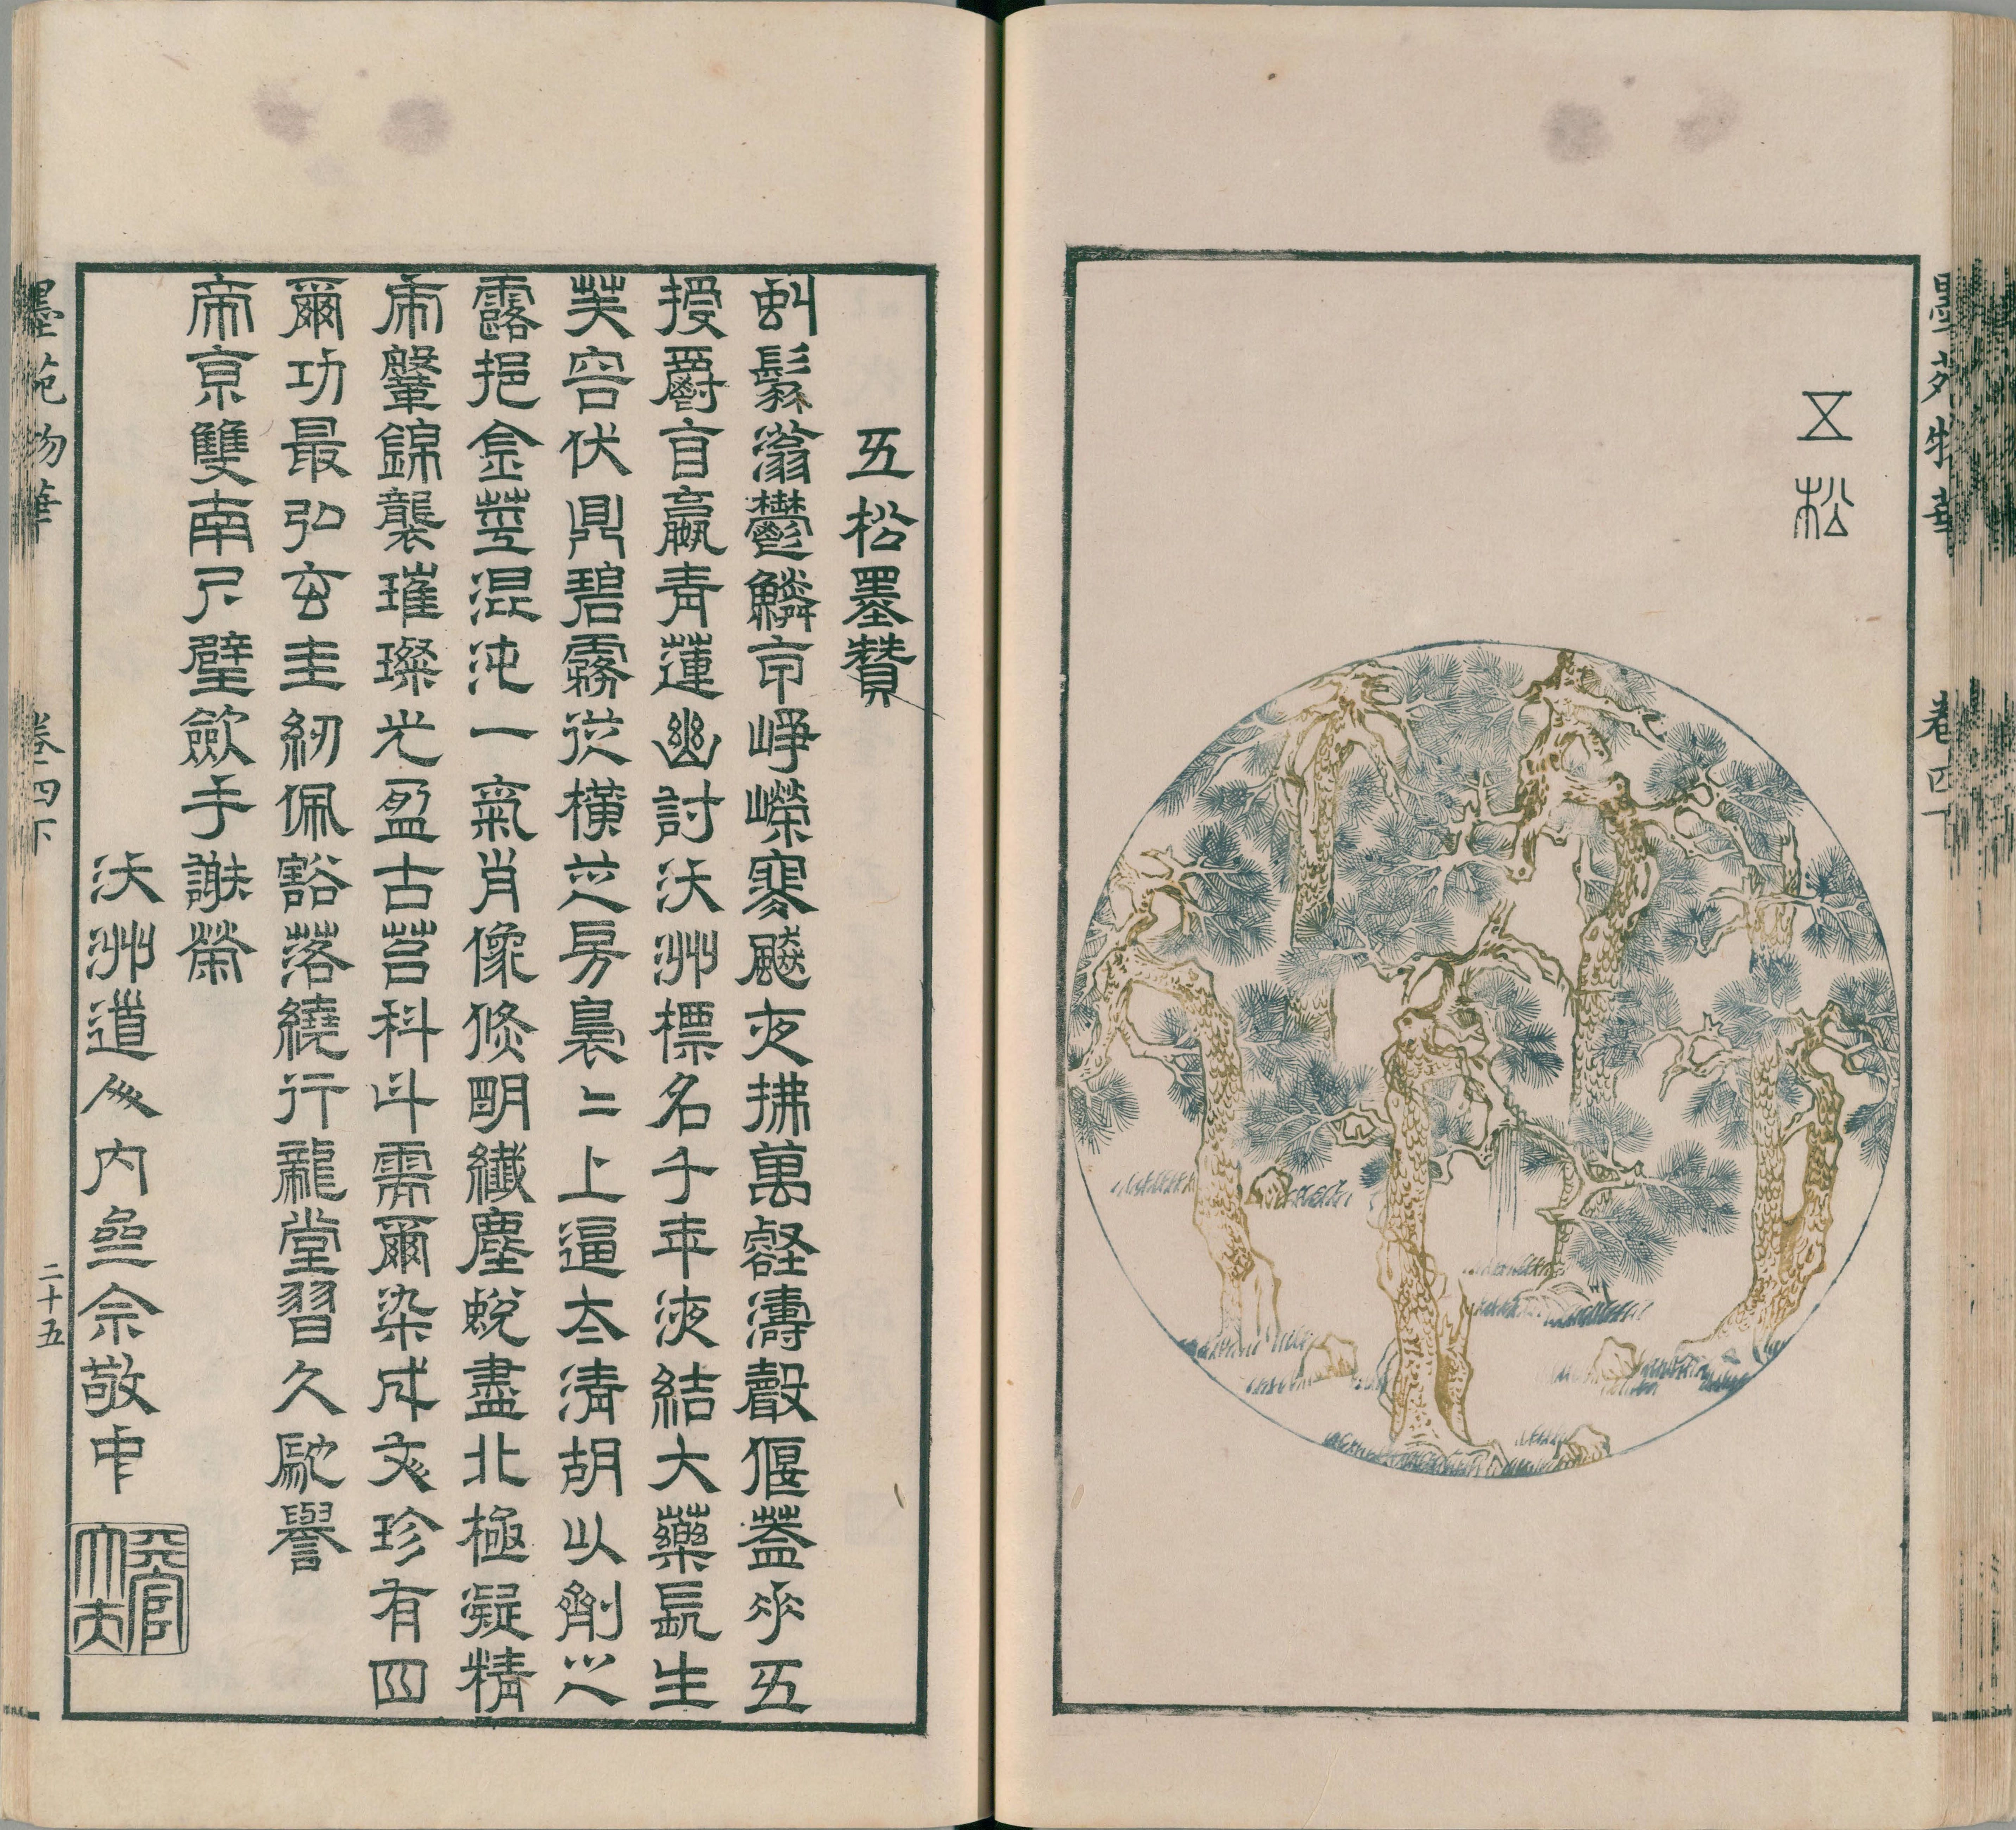 墨苑物華 卷四下
五松
五松墨贊
虯鬚滃鬱鱗甲崢嶸寒飇夜拂萬壑濤聲偃蓋承五
授爵盲嬴青蓮幽討沃洲標名千年液結大藥長生
芙容伏鼎碧霧從橫芝房裊二上逼太清胡以劑之
露挹金莖混沌一氣肖像倏朙纖塵蛻盡北極凝精
帝鞶錦襲璀璨光盈古莒科斗需爾染成文珍有四
爾功最弘玄圭紉佩豁落繞行龍堂習久馳譽
帝京雙南尺璧歛手謝榮
沃洲道人內壘余敬中
墨苑物華 卷四下 二十五